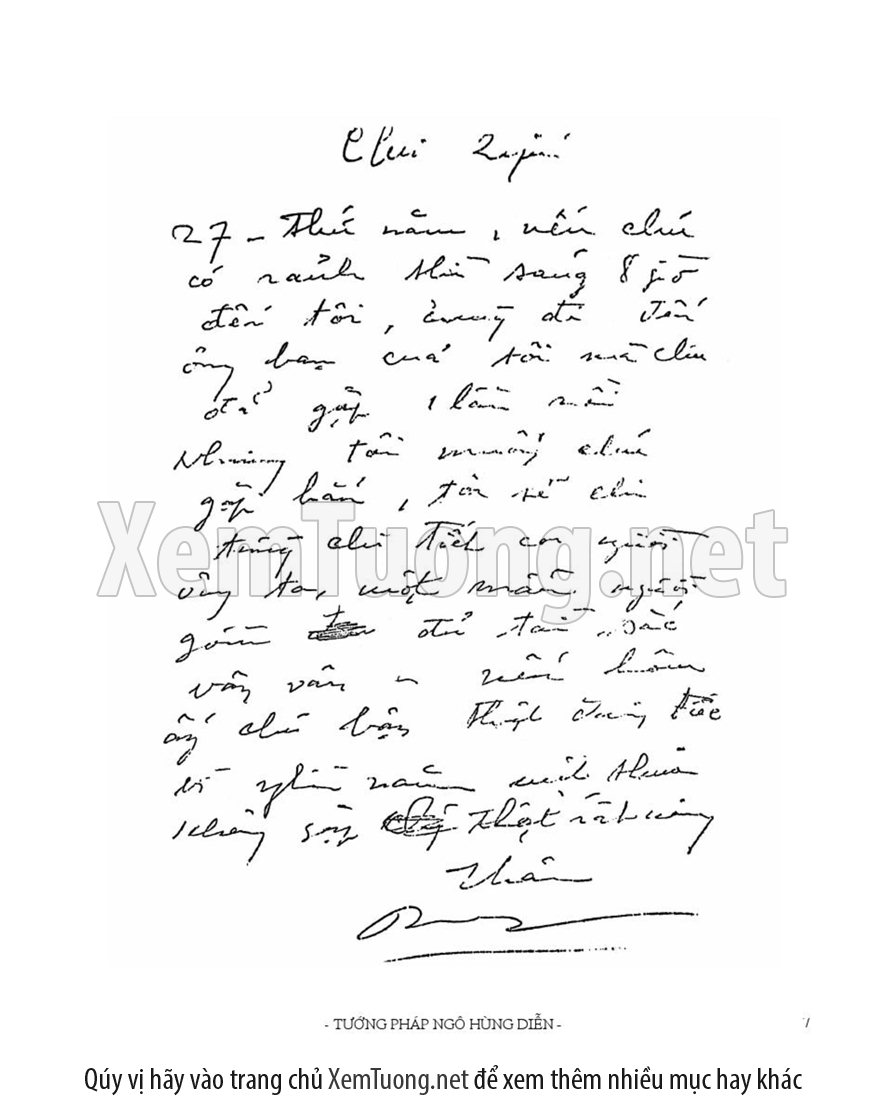 Chú
27 - Thứ năm, nếu chú
có rảnh thì sáng 8 giờ
đến tôi, cùng đi đến
ông bạn của tôi mà chú
đã gặp 1 lần rồi
Nhưng tôi muốn chú
gặp hắn, tôi sẽ chỉ
XemTuong.net
từng chi tiết con người
ông ta, một mẫu người
gồm đủ tài sắc
vân vân - nếu hôm
ấy chú bận thật đáng tiếc
vì nghìn năm một thuở
không gặp Thật rất mong
Thân
- TƯỚNG PHÁP NGÔ HÙNG DIỄN -
7
Qúy vị hãy vào trang chủ XemTuong.net để xem thêm nhiều mục hay khác